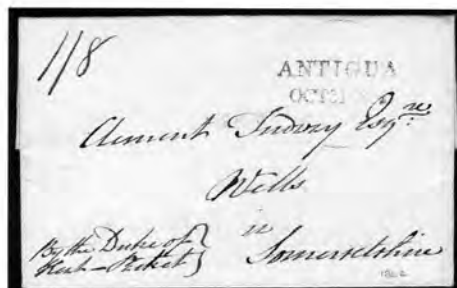 1/8
ANTIGUA
OCT 21
Clement Tudway Esqre
Wells
in
Somersetshire
By the Duke of
Kent Packet